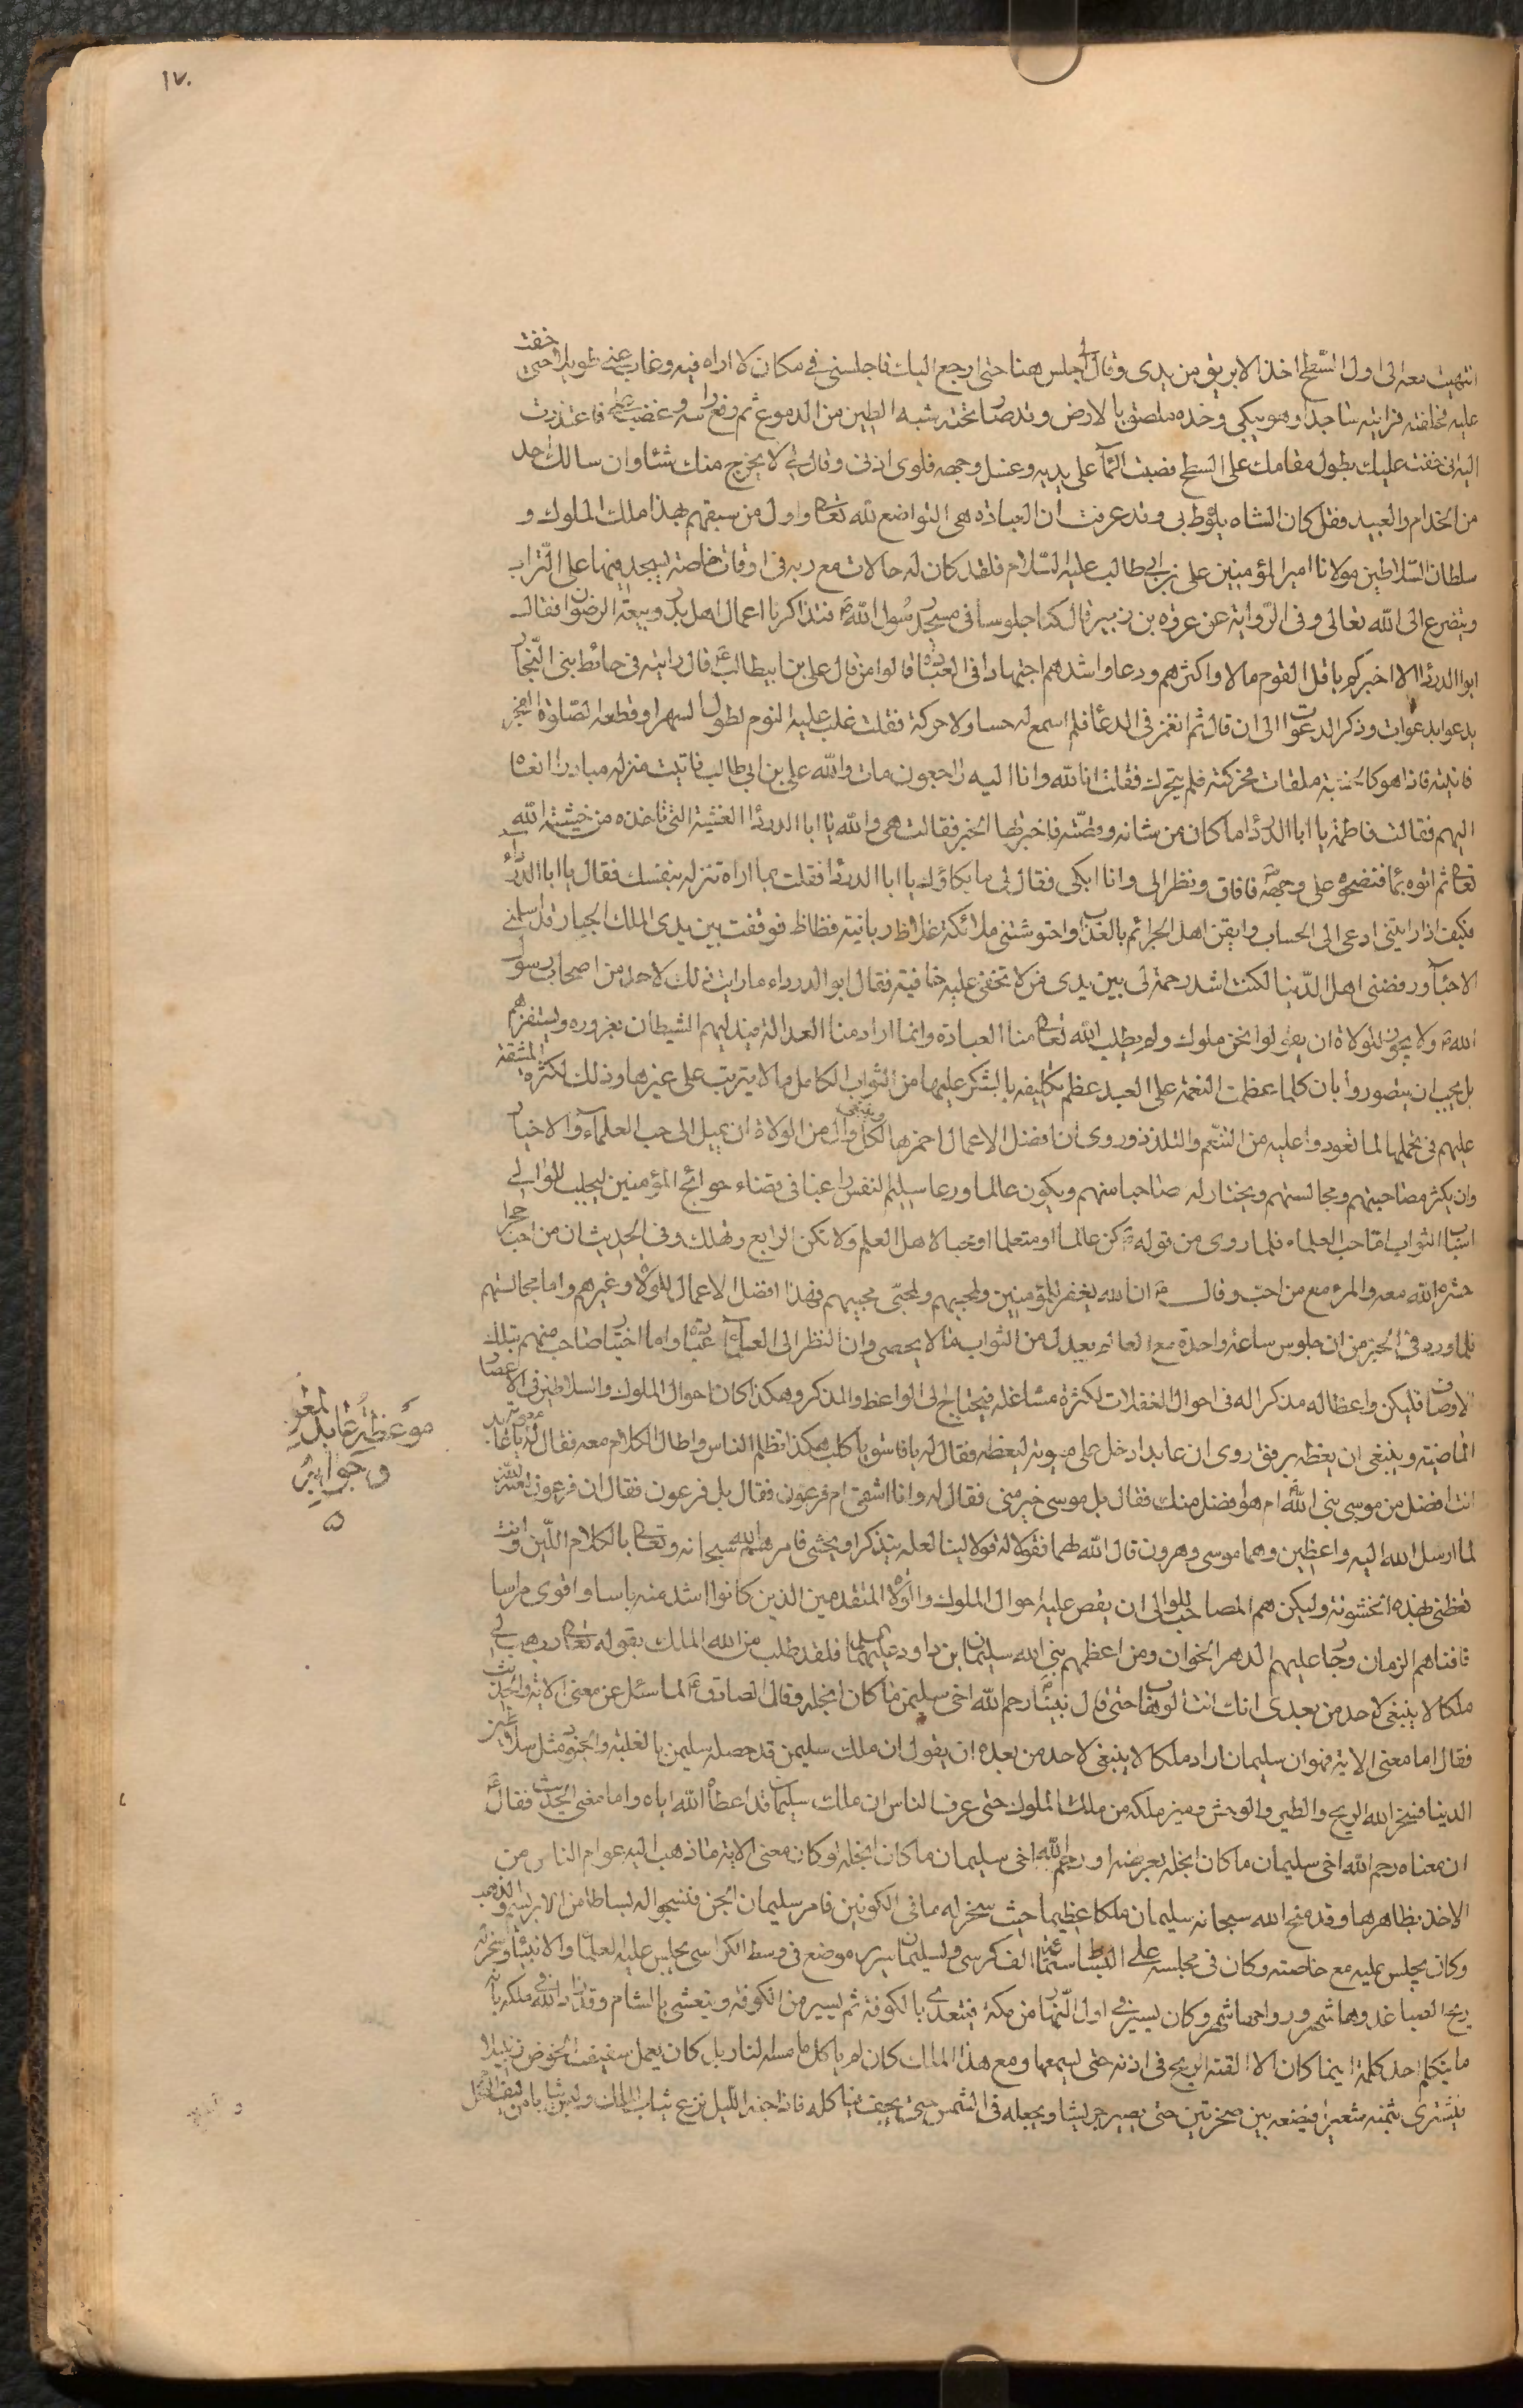 ١٧٠
انتهيت معه الى اول السّطح اخذ الابريق من يدى وقال لى اجلس هنا حتى ارجع اليك فاجلسنى فى مكان لا اراه فيه وغاب عنى طويلا حتى خفت
عليه فخالفته فرايته ساجدا وهو يبكى وخده ملصق بالارض وقد صار تحته شبه الطين من الدموع ثم رفع راسه وغضب على فاعتذرت
اليه انى خفت عليك بطول مقامك على السطح فصببت الماء على يديه وغسل وجهه فلوى اذنى وقال لى لا يخرج منك شئا وان سالك احد
من الخدام والعبيد فقل كان الشاه يلوط بى وقد عرفت ان العبادة هى التواضع لله تعالى واول من سبقهم بهذا ملك الملوك و
سلطان السّلاطين مولانا امير المؤمنين على بن ابى طالب عليه السّلام فلقد كان له حالات مع ربه فى اوقات خاصة يسجد فيها على التّراب
ويتضرع الى الله تعالى وفى الرّواية عن عروه بن زبير قال كنا جلوسا فى مسجد رسول الله ص فتذاكرنا اعمال اهل بدر وبيعة الرضوان فقال
ابوا الدردا الا اخبركم باقل القوم مالا واكثرهم ودعا واشدهم اجتهادا فى العبادة قالوا من قال على بن ابيطالب ع قال رايته فى حائط بنى النجّار
يدعوا بدعوات وذكر الدعوات الى ان قال ثم انغمز فى الدعا فلم اسمع له حسا ولا حركة فقلت غلب عليه النوم لطول السهر اوقظه لصّلوة الفجر
فاتيته فاذا هو كالخشبة ملقات فحركته فلم يتحرك فقلت انا لله وانا اليه راجعون مات والله على بن ابى طالب فاتيت منزله مبادرا انعاه
اليهم فقالت فاطمة يا ابا الدردا ما كان من شانه وقصّته فاخبرتها الخبر فقالت هى والله يا ابا الدردا الغشية التى تاخذه من خشية الله
تعالى ثم اتوه بما فنضحوه على وجهه فافاق ونظر الى وانا ابكى فقال لى ما بكاؤك يا ابا الدردا فقلت بما اراه تنزله بنفسك فقال يا ابا الدرداء
فكيف اذا رايتنى ادعى الى الحساب وايقن اهل الجرائم بالعذاب واحتوشتنى ملائكة غلاظ وزبانية فظاظ فوقفت بين يدى الملك الجبار قد اسلمنى
الاحبّاء ورفضنى اهل الدّنيا لكنت اشد رحمة لى بين يدى من لا تخفى عليه خافية فقال ابو الدرداء ما رايت ذلك لاحد من اصحاب رسول
الله ص ولا يجوز للولاة ان يقولوا نحن ملوك ولم يطلب الله تعالى منا العبادة وانما اراد منا العدالة فيدليهم الشيطان بغروره ويستفزهم
بل يجب ان يتصوروا بان كلما عظمت النعمة على العبد عظم تكليفه بالشكر عليها من الثواب الكامل ما لا يترتب على غيرها وذلك لكثرة المشقة
عليهم فى تحملها لما تعودوا عليه من التنعّم والتلذذ وروى ان افضل الاعمال احمزها وينبغى لكل وال من الولاة ان يميل الى حب العلماء والاخيار
وان يكثر مصاحبتهم ومجالستهم ويختار له صاحبا منهم ويكون عالما ورعا سليم النفس راغبا فى قضاء حوائج المؤمنين ليجلب للوالى
اسباب الثواب اما حب العلماء فلما روى من قوله ص كن عالما او متعلما او محبا لاهل العلم ولا تكن الرابع فتهلك وفى الحديث ان من احب حجرا
حشره الله معه والمرء مع من احب وقال ص ان الله يغفر للمؤمنين ولمحبيهم ولمحبّى محبيهم فهذا افضل الاعمال للولاة وغيرهم واما مجالستهم
فلما ورد فى الخبر من ان جلوس ساعة واحدة مع العالم يعدل من الثواب ما لا يحصى وان النظر الى العالم عبادة واما اختيار صاحب منهم بتلك
الاوصاف فليكن واعظا له مذكرا له فى احوال الغفلات لكثرة مشاغله فيحتاج الى الواعظ والمذكر وهكذا كان احوال الملوك والسلاطين فى الاعصار
الماضية وينبغى ان يعظه برفق روى ان عابدا دخل على معوية ليعظه فقال له يا فاسق يا كلب هكذا تظلم الناس واطال الكلام معه فقال له معوية يا عابد
انت افضل من موسى نبى الله ام هو افضل منك فقال بل موسى خير منى فقال له وانا اشقى ام فرعون فقال بل فرعون فقال ان فرعون لعنه الله
لما ارسل الله اليه واعظين وهما موسى وهرون قال الله لهما فقولا له قولا لينا لعله يتذكر او يخشى فامرهما الله سبحانه وتعالى بالكلام اللّين وانت
تعظنى بهذه الخشونة وليكن هم المصاحب للوالى ان يقص عليه احوال الملوك والولاة المتقدمين الذين كانوا اشد منه باسا واقوى مراسا
فافناهم الزمان وجار عليهم الدهر الخوان ومن اعظمهم نبى الله سليمان بن داود عليهما السلام فلقد طلب من الله الملك بقوله تعالى رب هب لى
ملكا لا ينبغى لاحد من بعدى انك انت الوهاب حتى قال نبينا رحم الله اخى سليمن ما كان ابخله وقال الصادق ع لما سئل عن معنى الاية والحديث
فقال اما معنى الاية فهو ان سليمان اراد ملكا لا ينبغى لاحد من بعده ان يقول ان ملك سليمن قد حصله سليمن بالغلبة والجنود مثل سلاطين
الدينا فسخر الله الريح والطير والوحش وميز ملكه من ملك الملوك حتى عرف الناس ان ملك سليمان قد اعطاه الله اياه واما معنى الحديث فقال ع
ان معناه رحم الله اخى سليمان ما كان ابخله بعرضه او رحم الله اخى سليمان ما كان ابخله لو كان معنى الاية ما ذهب اليه عوام الناس من
الاخذ بظاهرها وقد منح الله سبحانه سليمان ملكا عظيما حيث سخر له ما فى الكونين فامر سليمان الجن فنسجوا له بساطا من الابريسم والذهب
وكان يجلس عليه مع خاصته وكان فى مجلسه على البساط ستمائة الف كرسى ولسليمان سرير موضع فى وسط الكراسى يجلس عليه العلما والانبيا وسخر له
ريح الصبا غدوها شهر ورواحها شهر وكان يسير فى اول النّهار من مكة فيتغدى بالكوفة ثم يسير من الكوفة ويتعشى بالشام وقد زاد الله فى ملكه بانه
ما يتكلم احد كلمة اينما كان الا القته الريح فى اذنه حتى يسمعها ومع هذا الملك كان لم ياكل ما مسته النار بل كان يعمل سفيفة الخوص زنبيلا
فيشترى بثمنه شعيرا فيضعه بين صخرتين حتى يصير جريشا ويجعله فى الشمس حتى يجف فياكله فاذا جنه الليل نزع ثياب الملك ولبس ثيابا من ليف النخل
موعظة عابد لمعوية
وجوابه